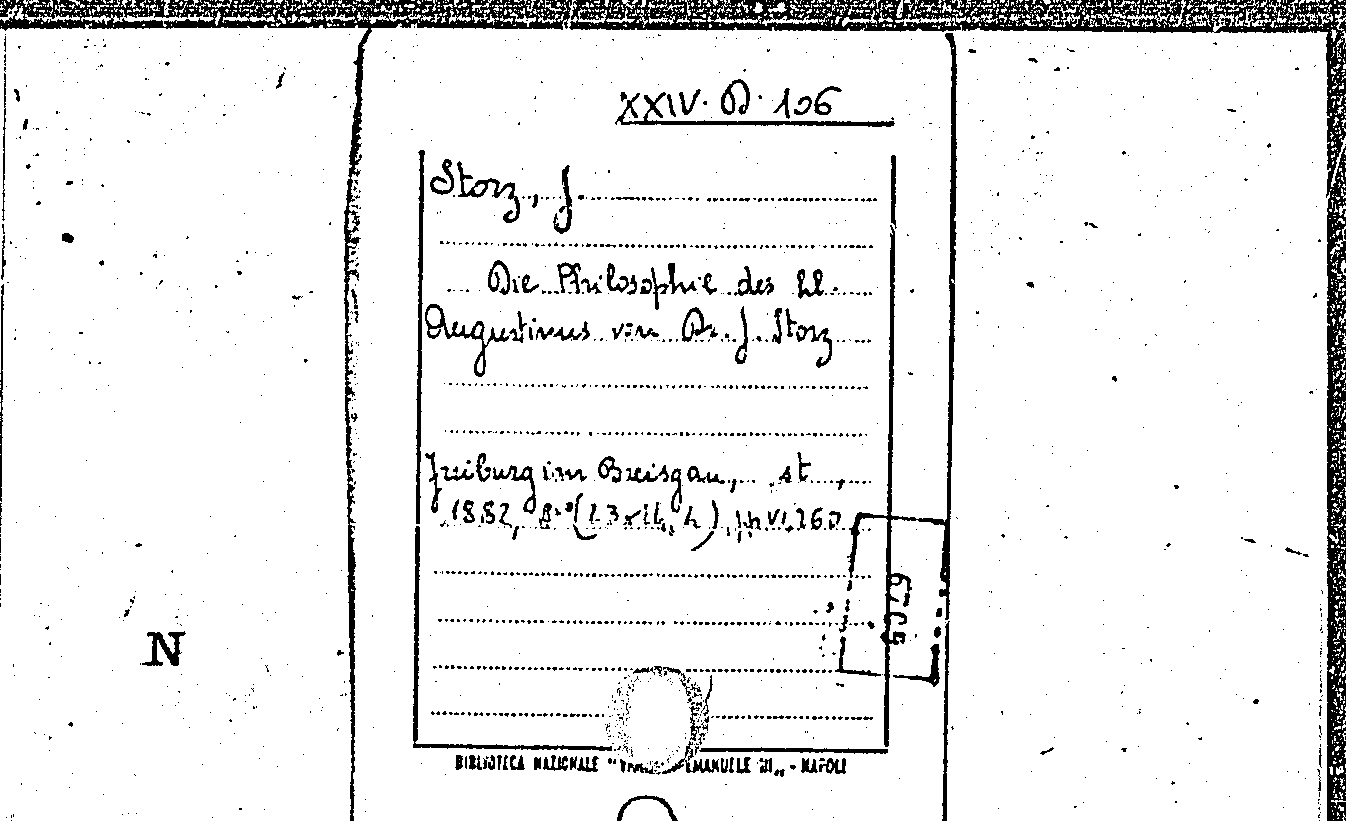 XXIV. D. 106
Storz, J.
Die Philosophie des hl.
Augustinus von Dr. J. Storz
Freiburg im Breisgau, st,
1882, 8° (23x14, h), pp VI, 260
6029
N
BIBLIOTECA NAZIONALE " EMANUELE III„ - NAPOLI